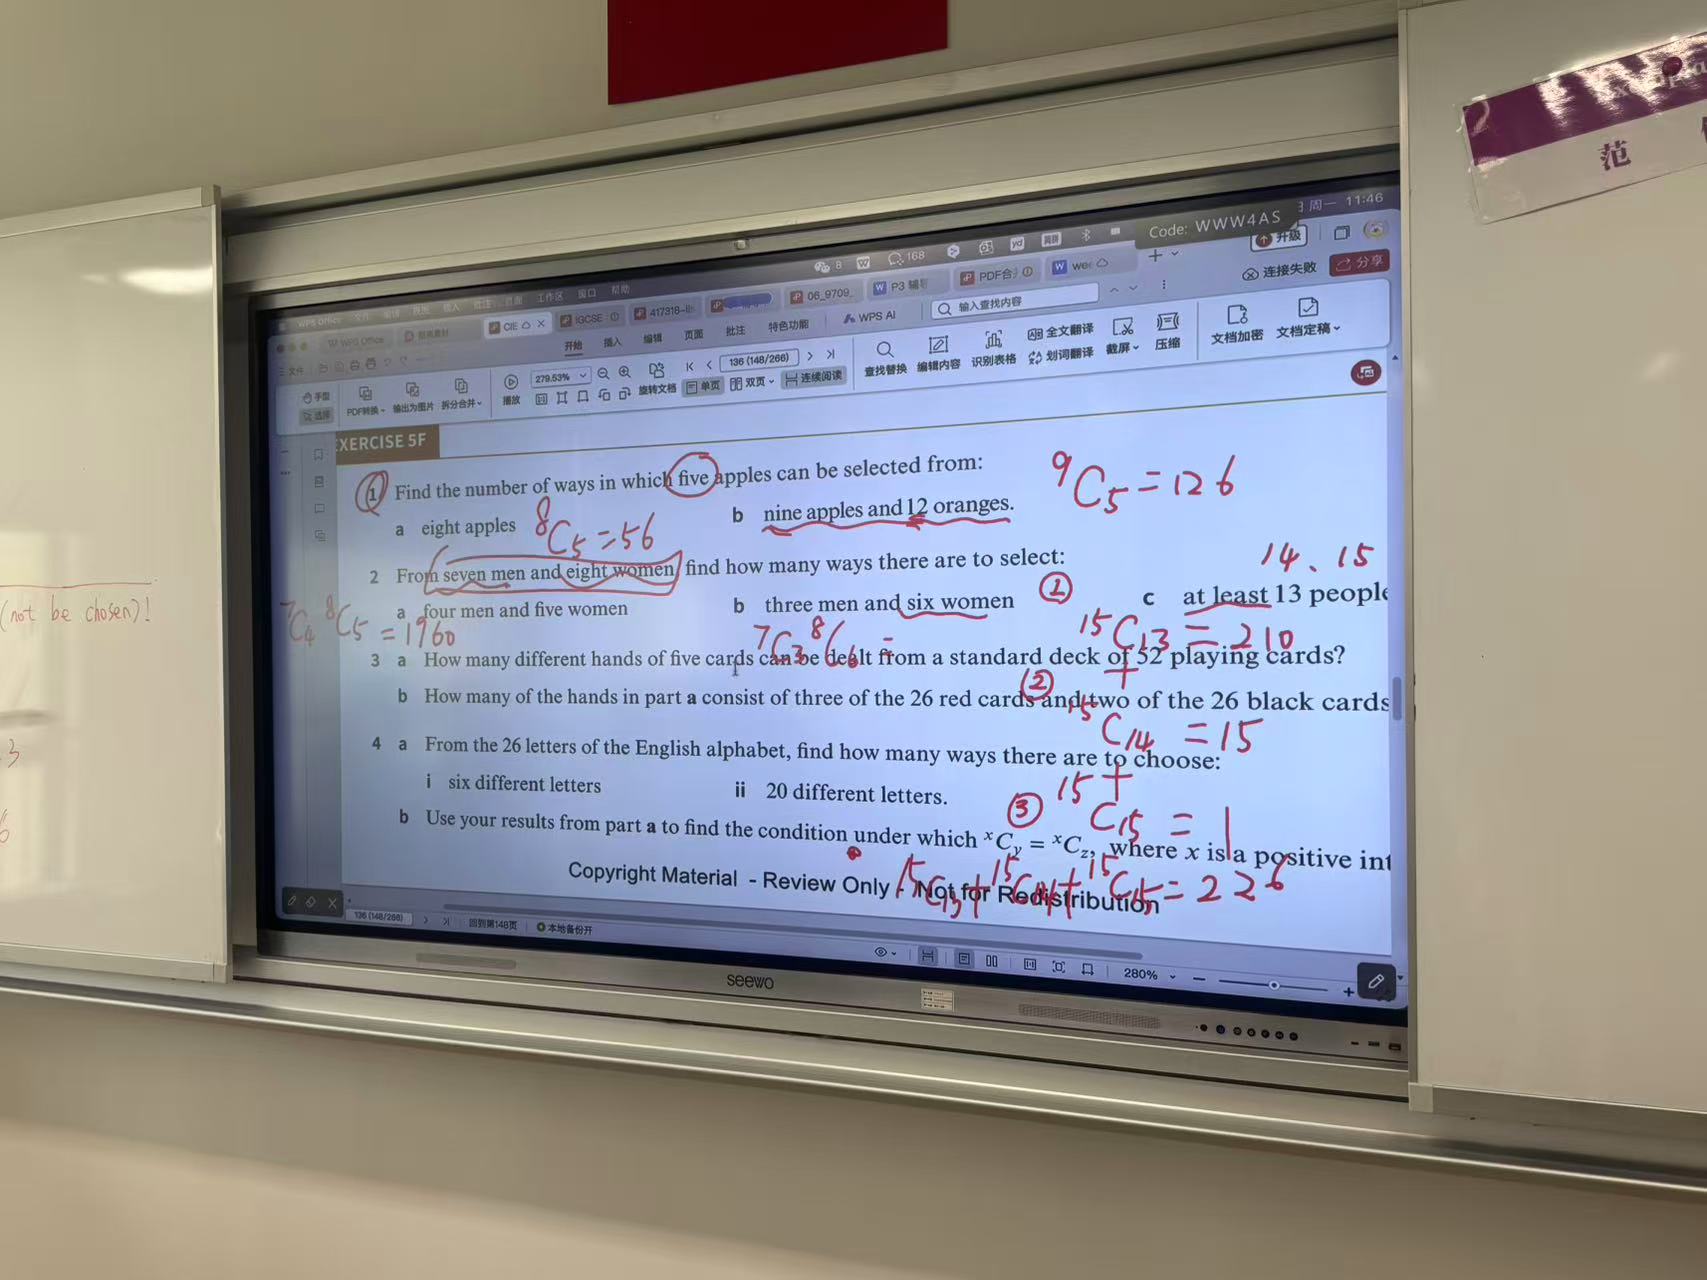 周一 11:46
Code: WWW4AS
8 168
升级
WPS Office 文件 编辑 视图 插入 批注 页面 工作区 窗口 帮助
WPS Office
CIE
IGCSE
06_9709_
P3
PDF合
连接失败
分享
开始 插入 编辑 页面 批注 特色功能 WPS AI
输入查找内容
文件
手型
选择
PDF转换
输出为图片
拆分合并
播放
279.53%
旋转文档
136 (148/266)
单页
双页
连续阅读
查找替换
编辑内容
识别表格
全文翻译
划词翻译
截屏
压缩
文档加密
文档定稿
EXERCISE 5F
1 Find the number of ways in which five apples can be selected from:
a eight apples
⁸C₅ = 56
b nine apples and 12 oranges.
⁹C₅ = 126
2 From seven men and eight women, find how many ways there are to select:
14、15
a four men and five women
b three men and six women
① c at least 13 people
⁷C₄ ⁸C₅ = 1960
⁷C₃ ⁸C₆ =
¹⁵C₁₃ = 210
3 a How many different hands of five cards can be dealt from a standard deck of 52 playing cards?
+
b How many of the hands in part a consist of three of the 26 red cards and two of the 26 black cards
② ¹⁵C₁₄ = 15
4 a From the 26 letters of the English alphabet, find how many ways there are to choose:
+
i six different letters
ii 20 different letters.
③ ¹⁵C₁₅ = 1
b Use your results from part a to find the condition under which ˣCᵧ = ˣC_z, where x is a positive int
Copyright Material - Review Only - Not for Redistribution
¹⁵C₁₃ + ¹⁵C₁₄ + ¹⁵C₁₅ = 226
136 (148/266)
回到第148页
本地备份开
280%
seewo
(not be chosen)!
3
6
范